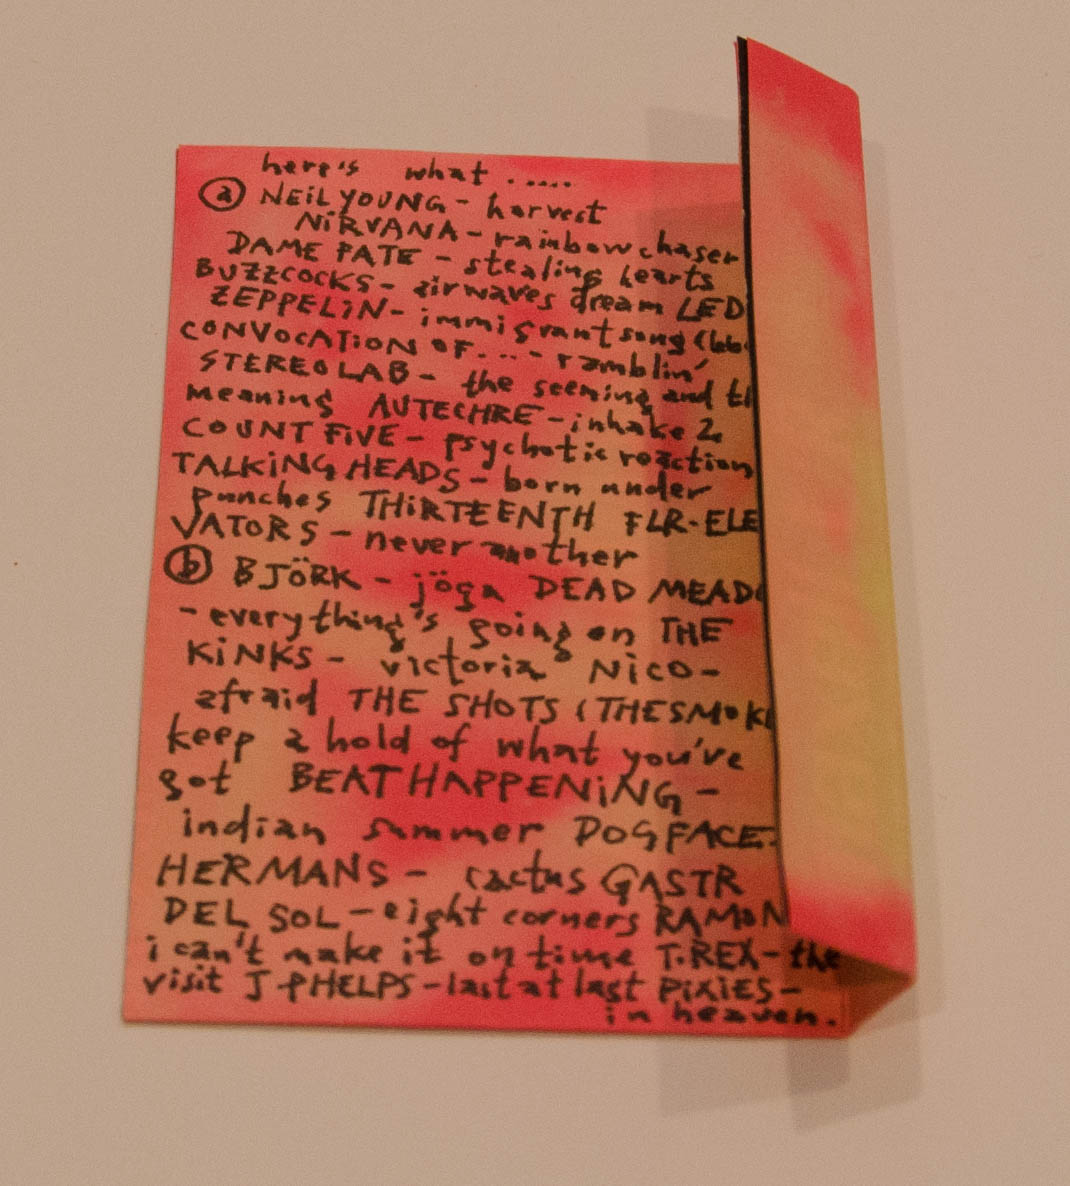 here's what .....
(a) NEiL YOUNG - harvest
NiRVANA - rainbow chaser
DAME FATE - stealing hearts
BUZZCOCKS - airwaves dream LED
ZEPPELiN - immigrant song (
CONVOCATiON OF.... - ramblin'
STEREOLAB - the seeming and th
meaning AUTECHRE - inhake 2
COUNT FiVE - psychotic reaction
TALKiNG HEADS - born under
punches THiRTEENTH FLR. ELE
VATORS - never another
(b) BJÖRK - jöga DEAD MEADO
- everything's going on THE
KiNKS - victoria NiCO -
afraid THE SHOTS (THE SMOK
keep a hold of what you've
got BEAT HAPPENiNG -
indian summer DOGFACE
HERMANS - cactus GASTR
DEL SOL - eight corners RAMON
i can't make it on time T.REX - the
visit J PHELPS - last at last PiXiES -
in heaven.